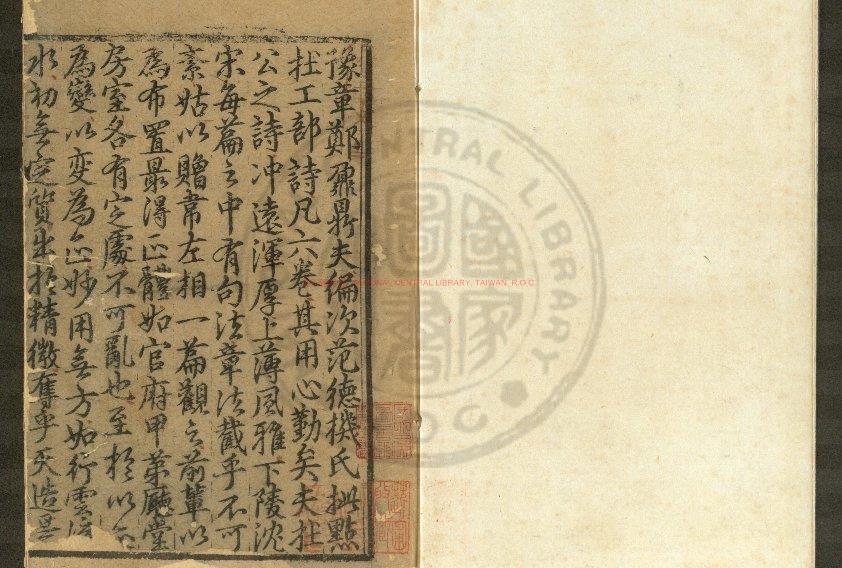 豫章鄭鼐鼎夫編次范德機氏批點
杜工部詩凡六卷其用心勤矣夫杜
公之詩冲遠渾厚上薄風雅下陵沈
宋每篇之中有句法章法截乎不可
紊姑以贈韋左相一篇觀之前輩以
為布置最得正體如官府甲第廳堂
房室各有定處不可亂也至於以正
為變以变為正妙用無方如行雲流
水初無定質出於精微奪乎天造是
NATIONAL CENTRAL LIBRARY, TAIWAN, R.O.C
CENTRAL LIBRARY
R O C
國家圖書